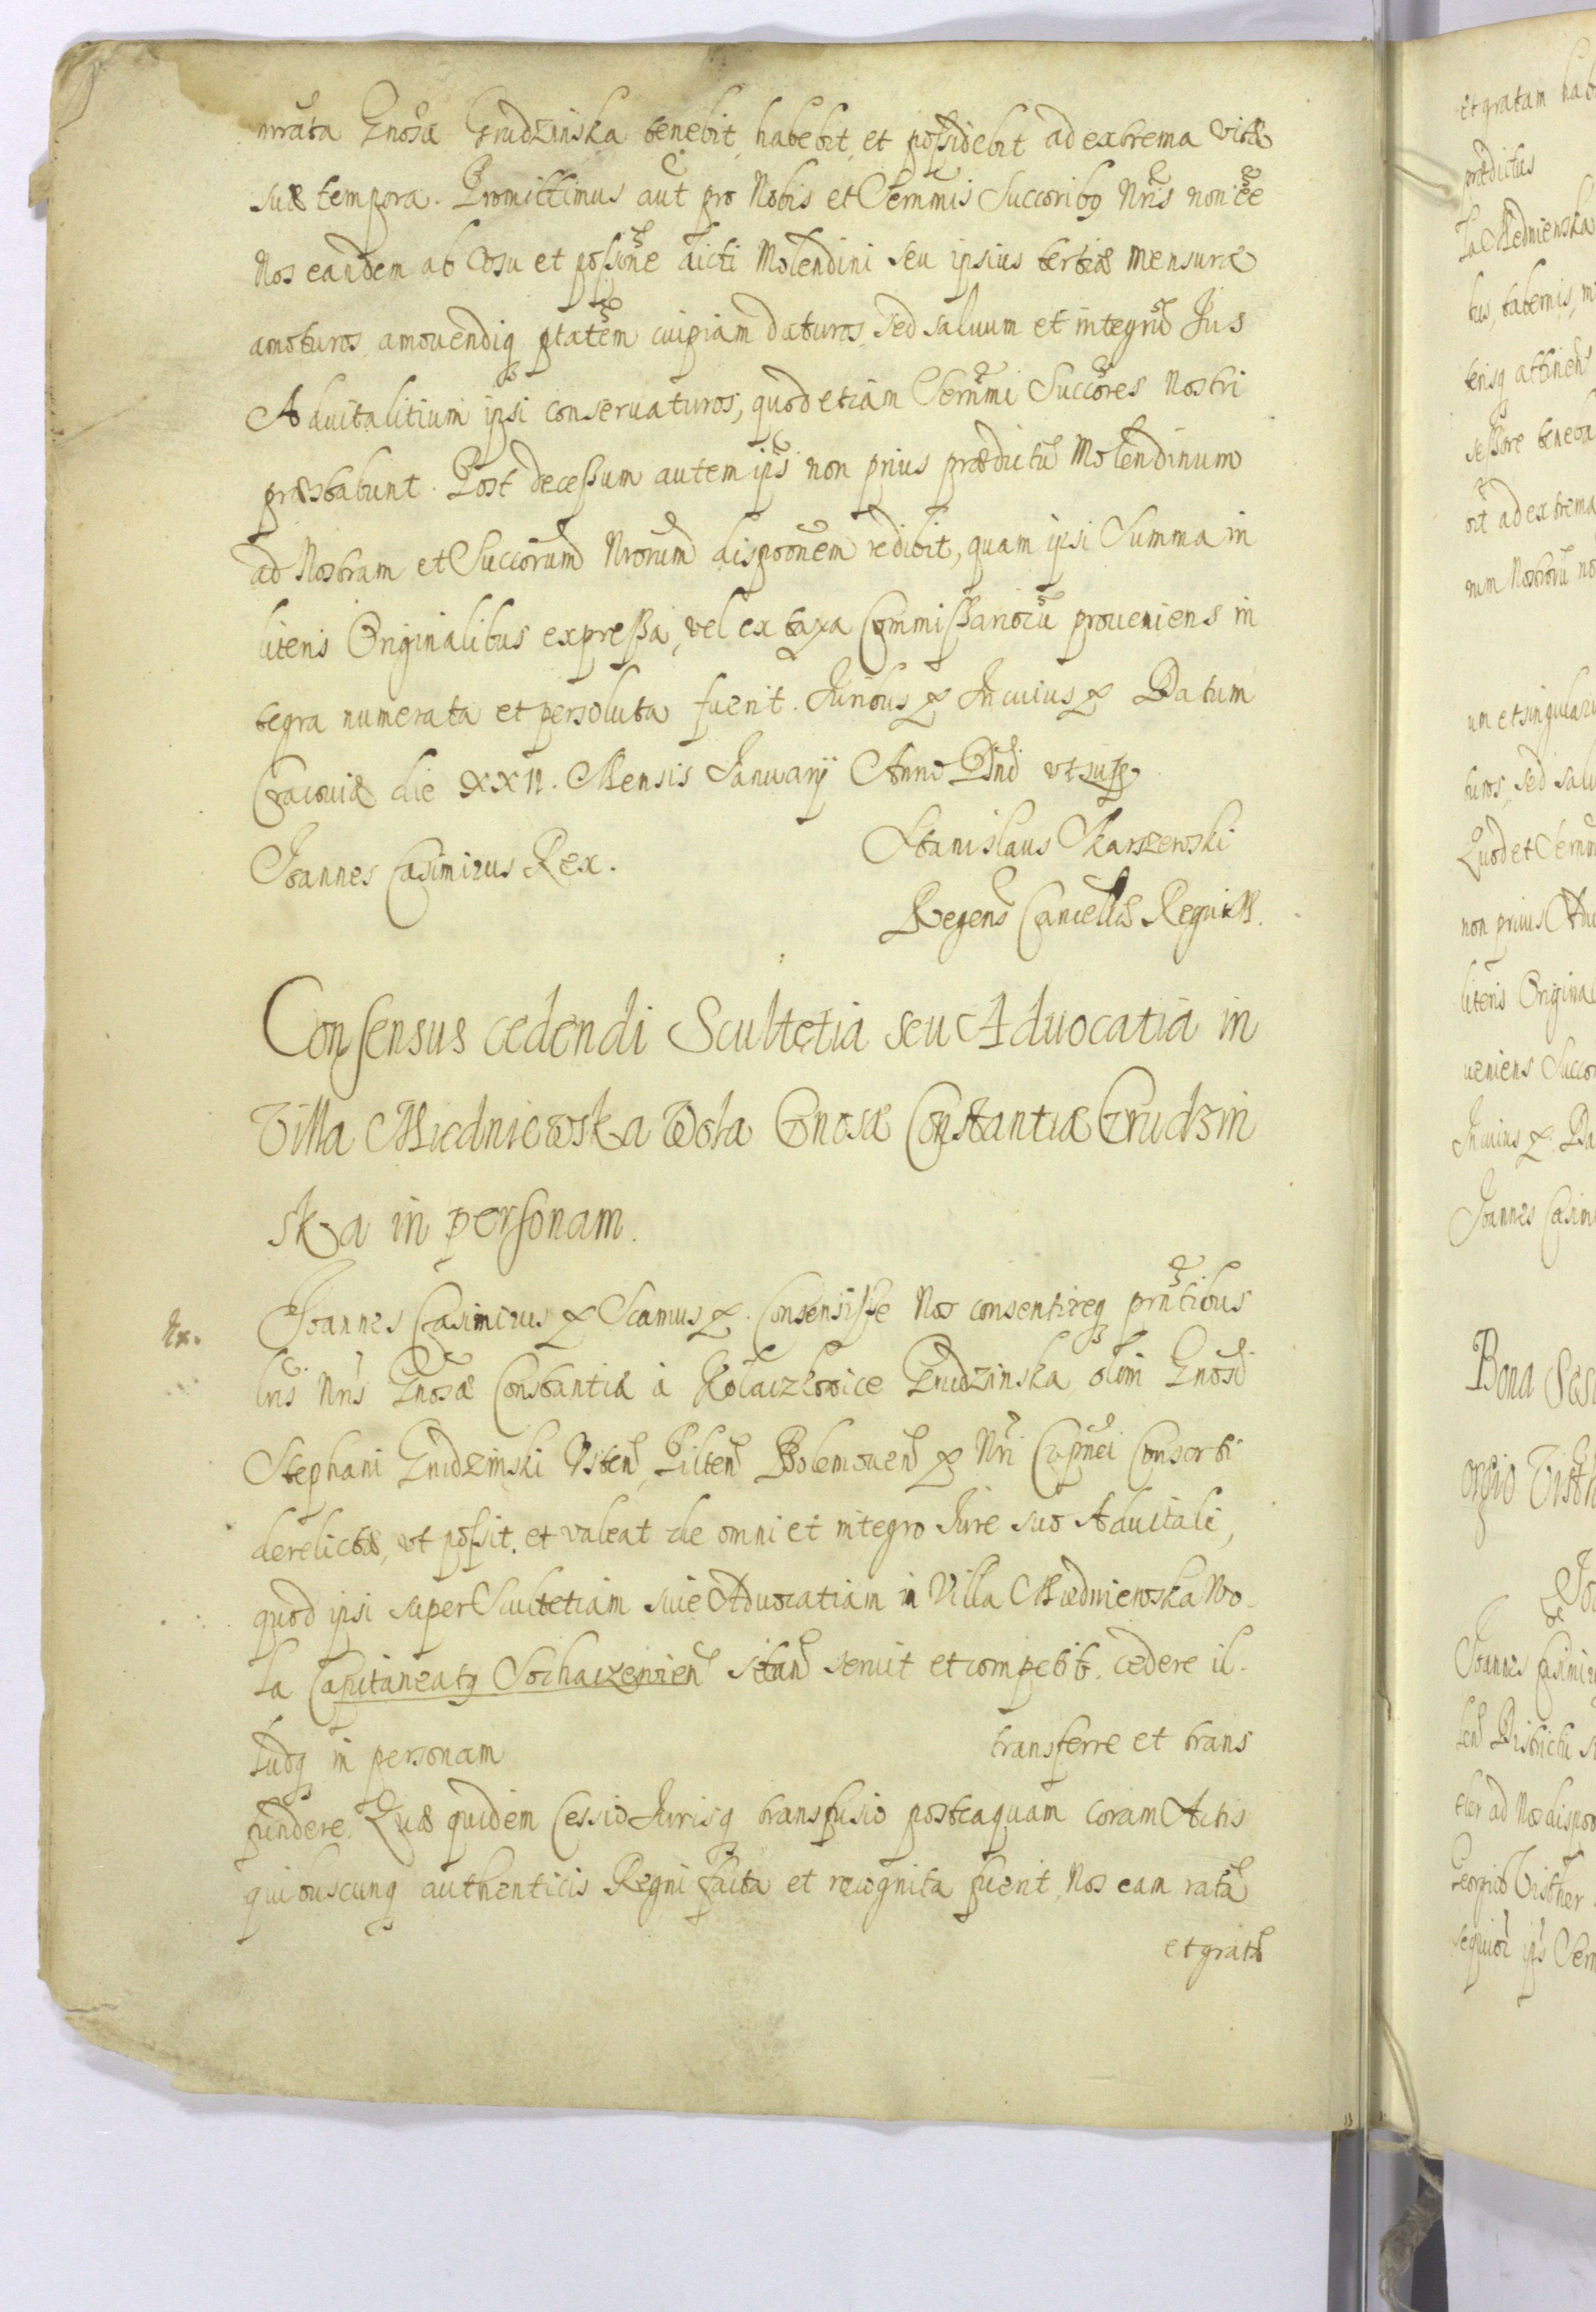 nrata Gnosa Grudzinska tenebit, habebit, et possidebit ad extrema vitæ
suæ tempora. Promittimus aut pro Nobis et Sermis Succoribq Nris non ēē
Nos eandem ab Vsu et possione dicti Molendini seu ipsius tertiæ mensuræ
amoturos, amouendiq ptatem cuipiam daturos, sed saluum et integrū Jus
Aduitalitium ipsi conseruaturos, quod etiam Sermi Succores Nostri
præstabunt. Post decessum autem ips non prius prædictū Molendinum
ad Nostram et Succorum Nrorum dispoōnem redibit, quam ipsi Summa in
literis Originalibus expressa, vel ex taxa Commissariorū proueniens in
tegra numerata et persoluta fuerit. Juribus & In cuius & Datum
Cracouiæ die XXII. Mensis Januarij Anno Dni vt supr
Joannes Casimirus Rex.
Stanislaus Skarszewski
Regens Cancellis Regni M.
Consensus cedendi Scultetiā seu Aduocatiā in
Villa Miedniewska Wola Gnosæ Constantiæ Grudzin
ska in personam.
Rx.
Joannes Casimirus & Scamus & Consensisse Nos consentireq prntibus
lris Nris Gnosæ Constantiæ à Kołaczkowice Grudzinska, olim Gnosi
Stephani Grudzinski Vsten, Pilten Bolemouen & Nri Capnei Consorti
derelictæ, vt possit, et valeat de omni et integro Jure suo Aduitali,
quod ipsi super Scultetiam siue Aduocatiam in Villa Miedniewska Wo-
la Capitaneatq Sochaczewien sitam seruit et competit, cedere il-
ludq in personam transferre et trans
fundere. Quæ quidem Cessio Jurisq transfusio posteaquam coram Actis
quibuscunq authenticis Regni facta et recognita fuerit, Nos eam ratā
et gratā
et gratam hab
prædictus
la Miednienska
bus, tabernis, m
terisq attinen
sessore teneba
bit ad extrema
rum Nostrorū no
um et singularu
turos, sed salu
Quod et Serm
non prius Adu
literis Origina
ueniens Succo
In cuius & Da
Joannes Casim
Bona
orgio Visth
Joannes Casimir
len Districtu s
ter ad Nos dispo
Georgio Visther
sequior ips Serm